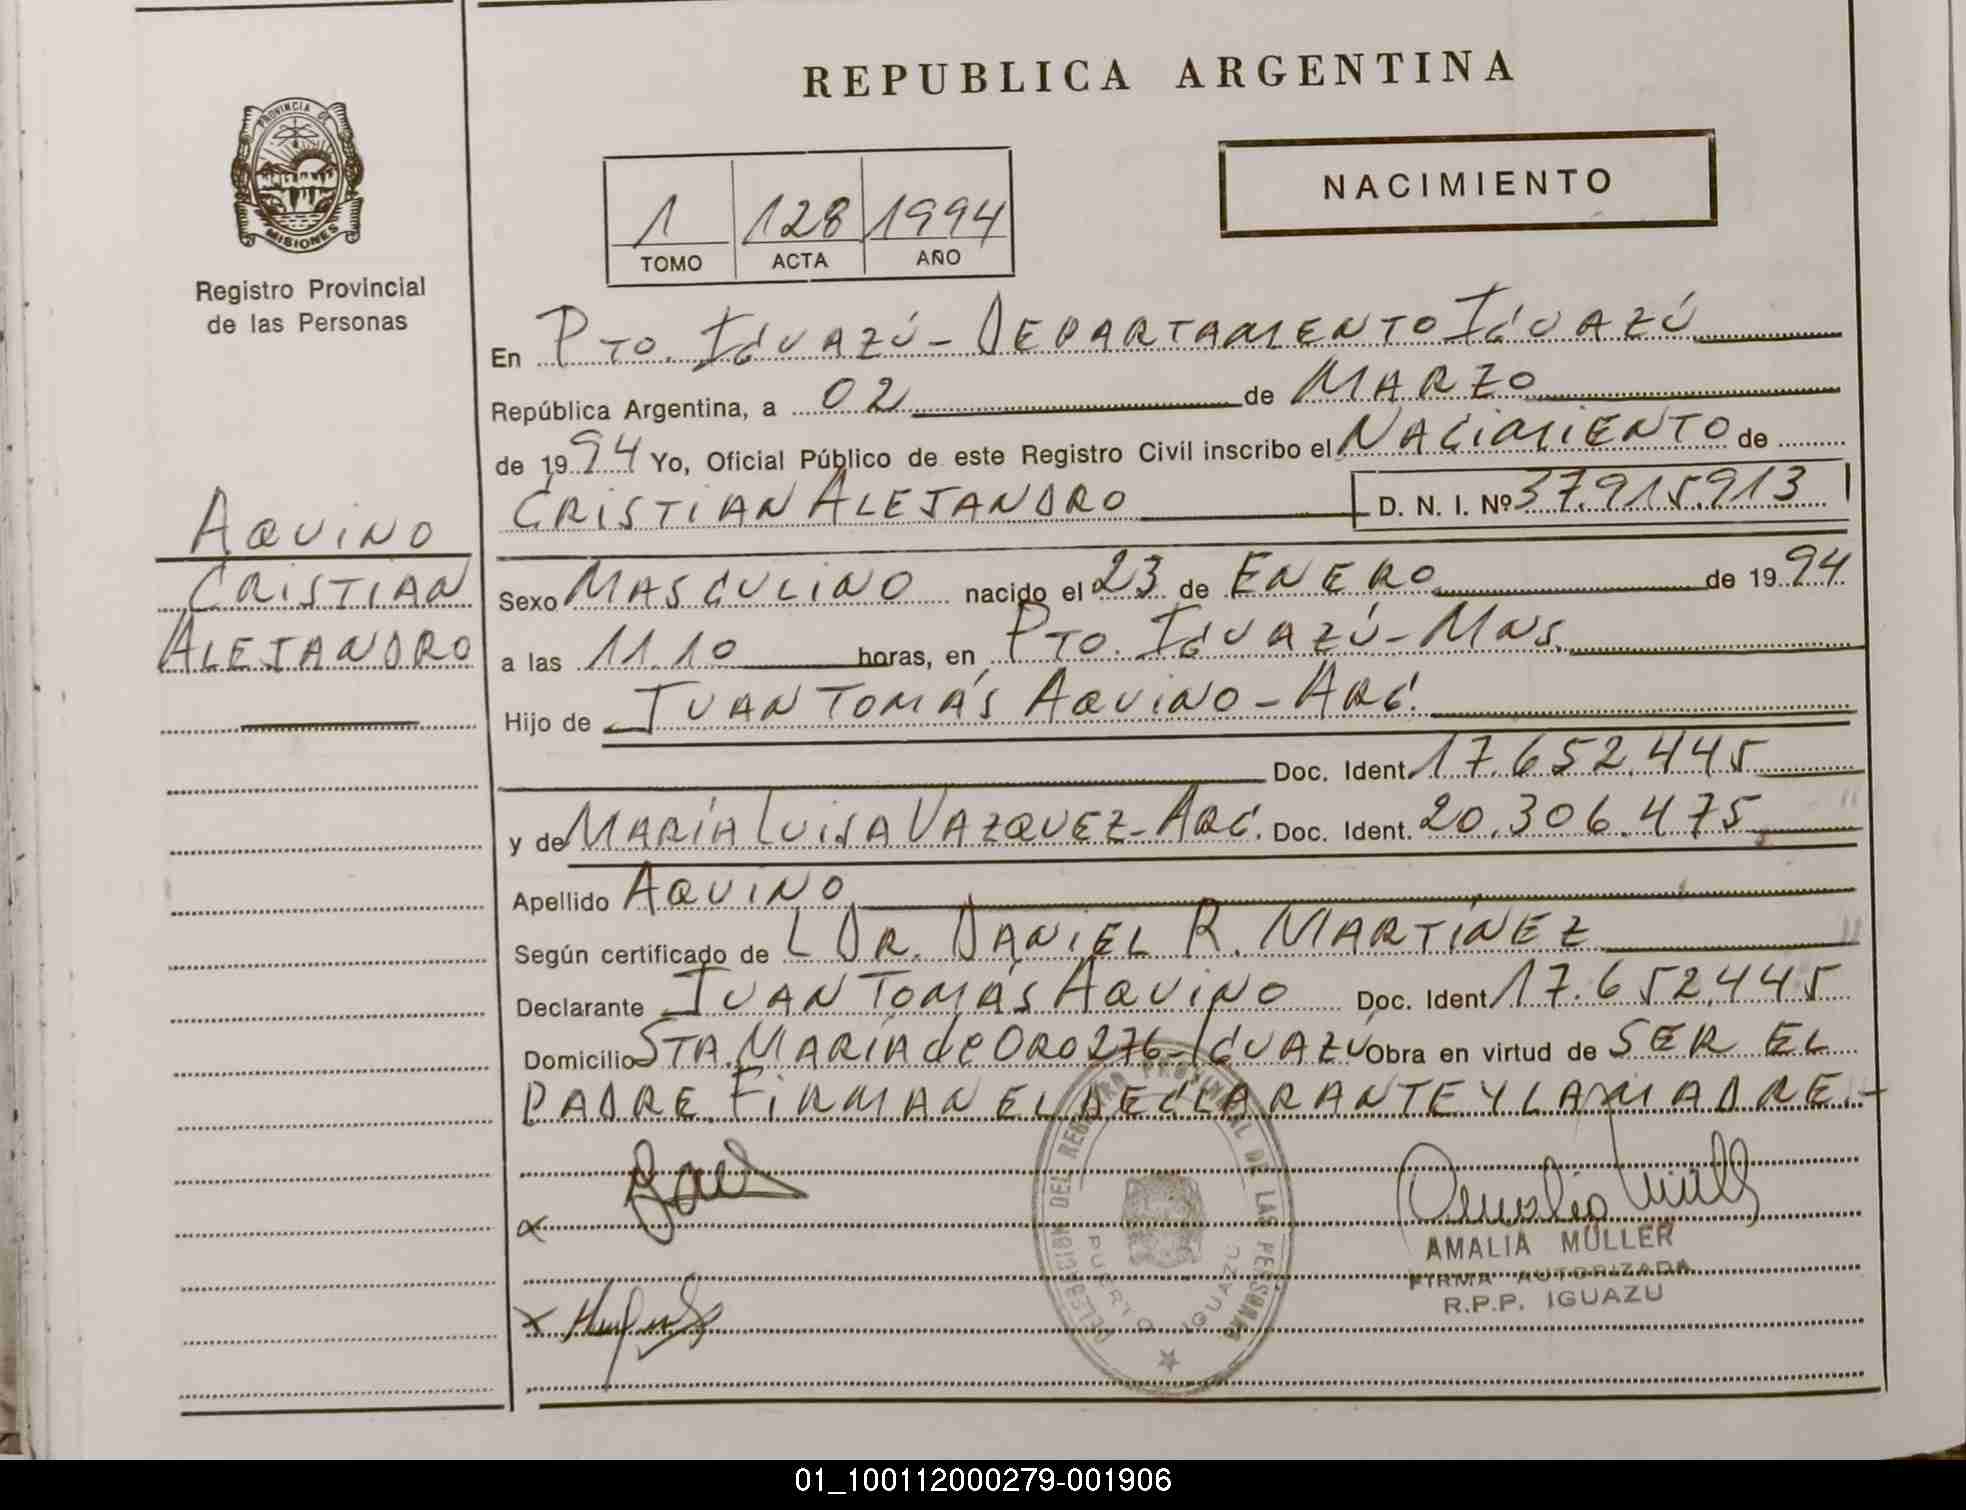 REPUBLICA ARGENTINA
PROVINCIA DE
MISIONES
Registro Provincial
de las Personas
NACIMIENTO
1 128 1994
TOMO ACTA AÑO
En PTO. IGUAZÚ - DEPARTAMENTO IGUAZÚ
República Argentina, a 02 de MARZO
de 1994 Yo, Oficial Público de este Registro Civil inscribo el NACIMIENTO de
CRISTIAN ALEJANDRO D. N. I. Nº 37.915.913
AQUINO
CRISTIAN
ALEJANDRO
Sexo MASCULINO nacido el 23 de ENERO de 1994
a las 11.10 horas, en PTO. IGUAZÚ - MNS.
Hijo de JUAN TOMÁS AQUINO - ARG.
Doc. Ident. 17.652.445
y de MARÍA LUISA VAZQUEZ - ARG. Doc. Ident. 20.306.475
Apellido AQUINO
Según certificado de L DR. DANIEL R. MARTÍNEZ
Declarante JUAN TOMÁS AQUINO Doc. Ident 17.652.445
Domicilio STA. MARÍA de ORO 276 - IGUAZÚ Obra en virtud de SER EL
PADRE. FIRMAN EL DECLARANTE Y LA MADRE.-
DELEGACION DEL REGISTRO PROVINCIAL DE LAS PERSONAS
PUERTO IGUAZU
AMALIA MÜLLER
FIRMA AUTORIZADA
R.P.P. IGUAZU
01_100112000279-001906